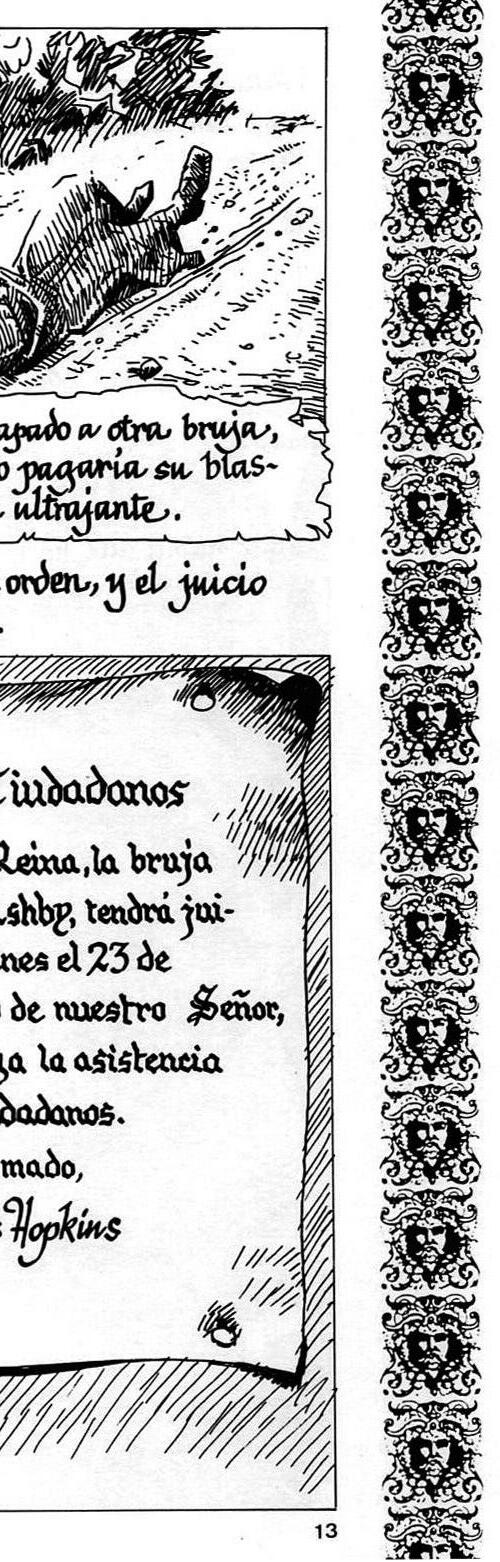 apado a otra bruja,
o pagaría su blas-
ultrajante.
orden, y el juicio
Ciudadanos
Reina, la bruja
shby, tendrá jui-
nes el 23 de
de nuestro Señor,
ga la asistencia
dadanos.
mado,
s Hopkins
13